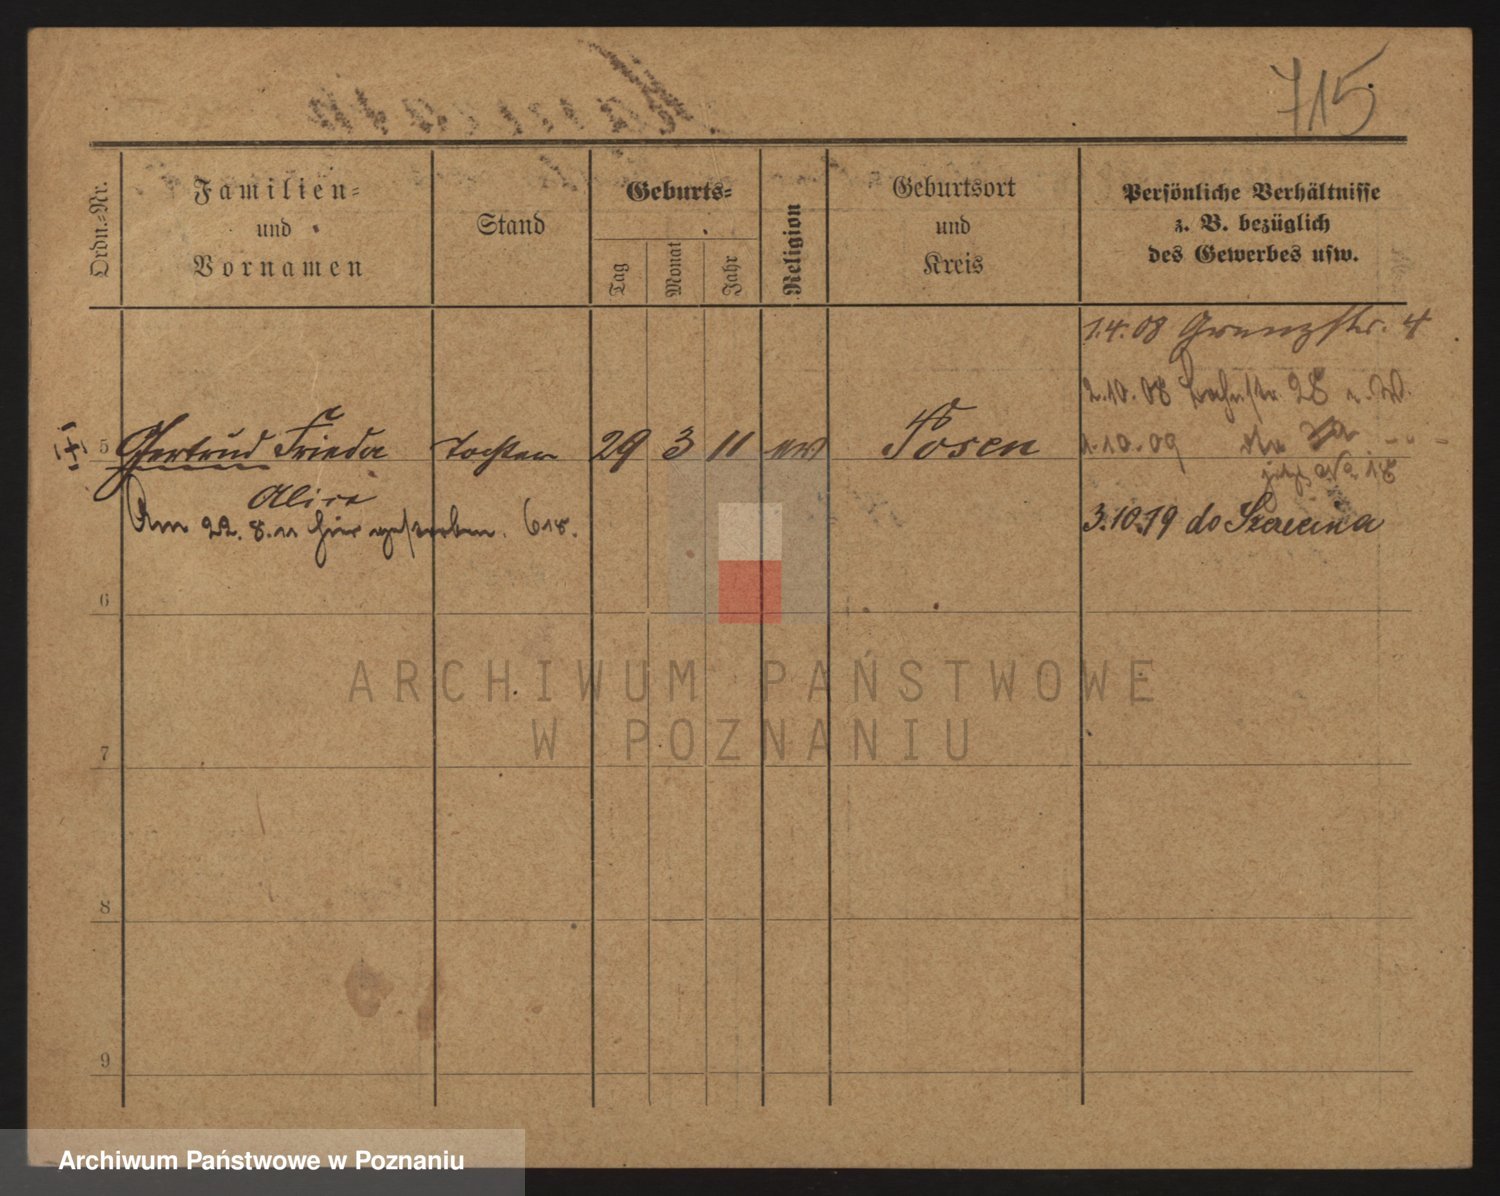 715
Ordn.-Nr.
Familien-
und
Vornamen
Stand
Geburts-
Tag
Monat
Jahr
Religion
Geburtsort
und
Kreis
Persönliche Verhältnisse
z. B. bezüglich
des Gewerbes usw.
1.4.08 Grenzstr. 4
2.10.08 28
5 Gertrud Frieda Tochter 29 3 11 ev Posen
1.10.09
jetzt No 18
Alice
Am 22. 8. 11 hier gestorben.
3.10.19 do
6
7
8
9
ARCHIWUM PAŃSTWOWE
W POZNANIU
Archiwum Państwowe w Poznaniu